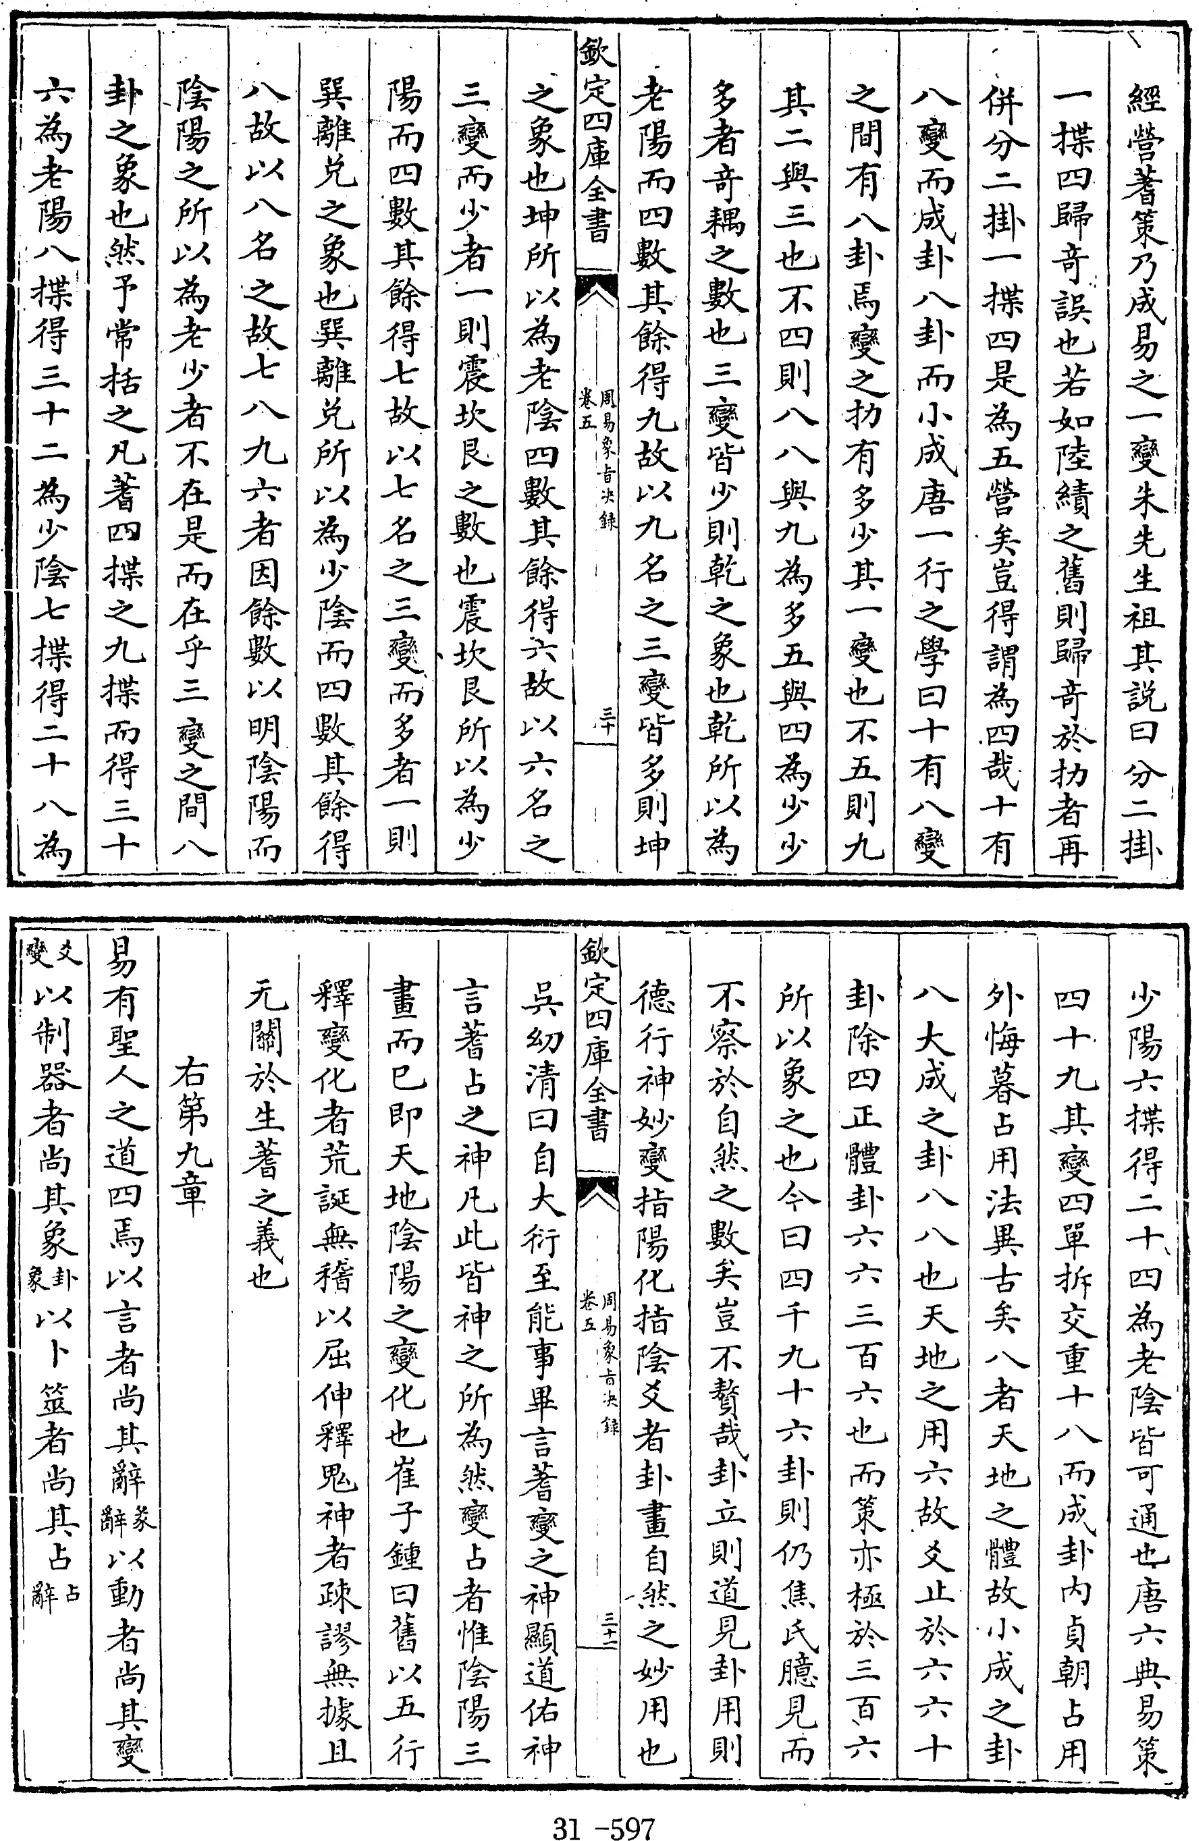 經營蓍策乃成易之一變朱先生祖其説曰分二掛
一揲四歸奇誤也若如陸績之舊則歸奇於扐者再
併分二掛一揲四是為五營矣豈得謂為四哉十有
八變而成卦八卦而小成唐一行之學曰十有八變
之間有八卦焉變之扐有多少其一變也不五則九
其二與三也不四則八八與九為多五與四為少少
多者奇耦之數也三變皆少則乾之象也乾所以為
老陽而四數其餘得九故以九名之三變皆多則坤
欽定四庫全書
周易象旨決錄
卷五
三十
之象也坤所以為老陰四數其餘得六故以六名之
三變而少者一則震坎艮之數也震坎艮所以為少
陽而四數其餘得七故以七名之三變而多者一則
巽離兑之象也巽離兑所以為少陰而四數其餘得
八故以八名之故七八九六者因餘數以明陰陽而
陰陽之所以為老少者不在是而在乎三變之間八
卦之象也然予常括之凡蓍四揲之九揲而得三十
六為老陽八揲得三十二為少陰七揲得二十八為
少陽六揲得二十四為老陰皆可通也唐六典易策
四十九其變四單拆交重十八而成卦内貞朝占用
外悔暮占用法異古矣八者天地之體故小成之卦
八大成之卦八八也天地之用六故爻止於六六十
卦除四正體卦六六三百六也而策亦極於三百六
所以象之也今曰四千九十六卦則仍焦氏臆見而
不察於自然之數矣豈不贅哉卦立則道見卦用則
德行神妙變指陽化指陰爻者卦畫自然之妙用也
欽定四庫全書
周易象旨決錄
卷五
三十一
吳幼清曰自大衍至能事畢言蓍變之神顯道佑神
言蓍占之神凡此皆神之所為然變占者惟陰陽三
畫而已即天地陰陽之變化也崔子鍾曰舊以五行
釋變化者荒誕無稽以屈伸釋鬼神者疎謬無據且
无關於生蓍之義也
右第九章
易有聖人之道四焉以言者尚其辭彖辭以動者尚其變
爻變以制器者尚其象卦象以卜筮者尚其占占辭
31-597